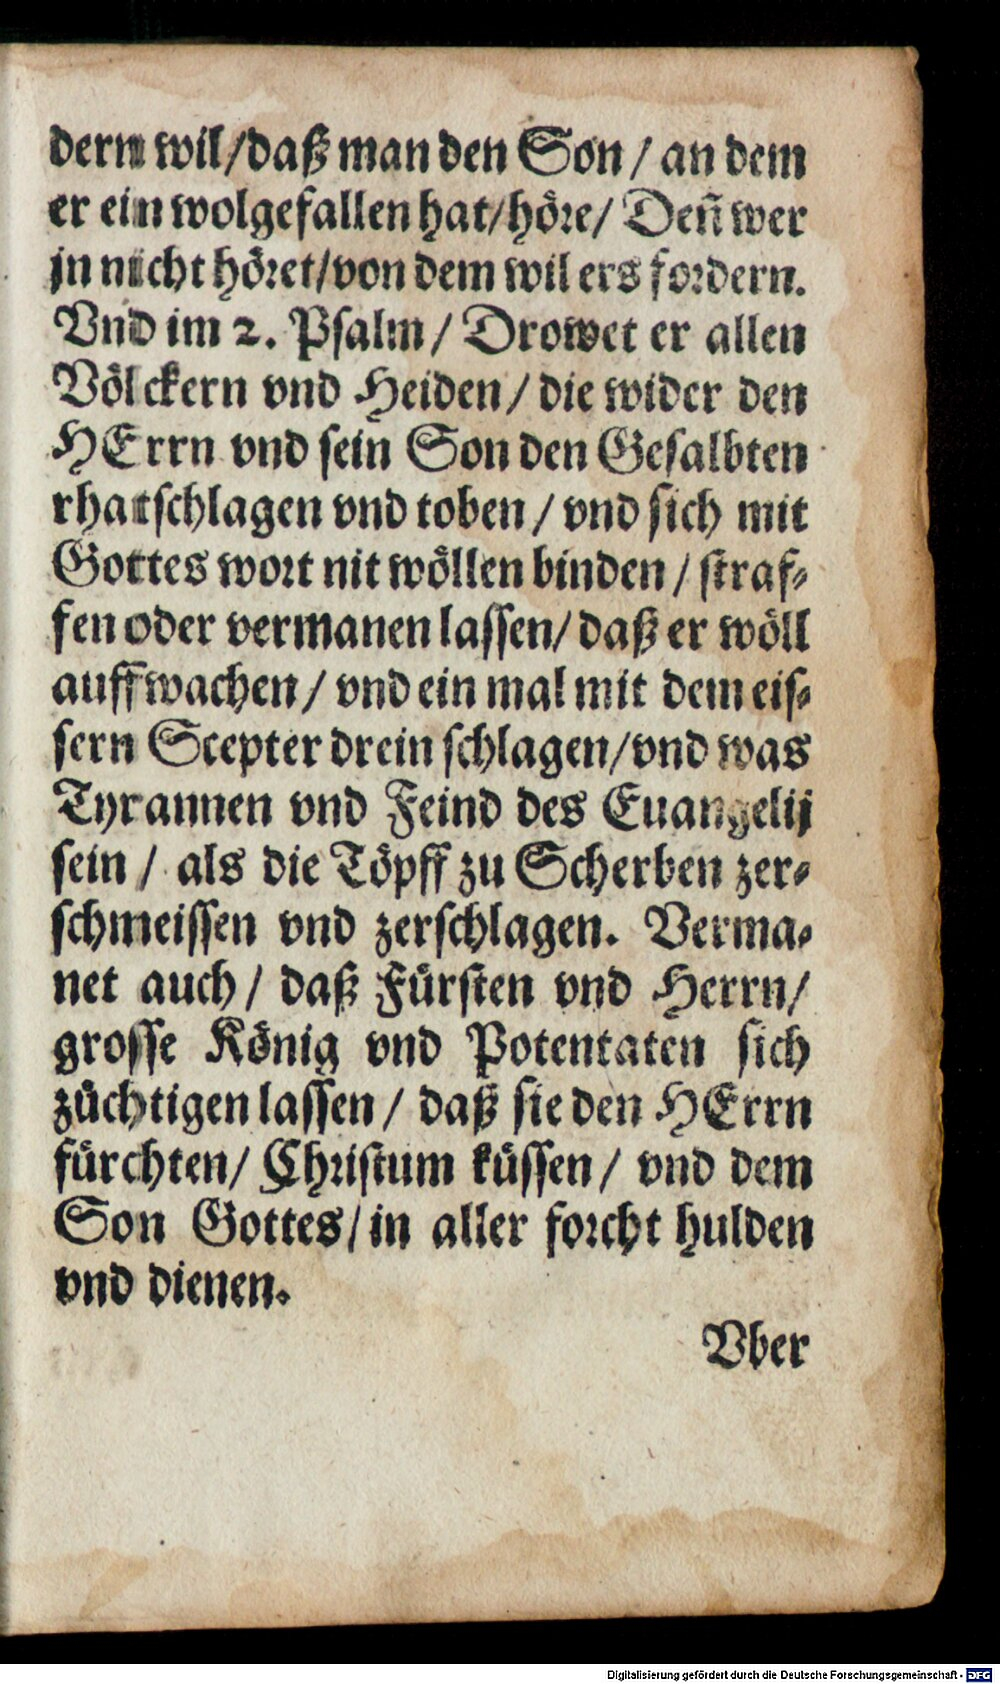 dern wil/daß man den Son / an dem
er ein wolgefallen hat/höre/ Deñ wer
jn nicht höret/von dem wil ers fordern.
Vnd im 2. Psalm / Drowet er allen
Völckern vnd Heiden / die wider den
HErrn vnd sein Son den Gesalbten
rhatschlagen vnd toben / vnd sich mit
Gottes wort nit wöllen binden / straf-
fen oder vermanen lassen/ daß er wöll
auffwachen / vnd ein mal mit dem eis-
sern Scepter drein schlagen/vnd was
Tyrannen vnd Feind des Euangelij
sein / als die Töpff zu Scherben zer-
schmeissen vnd zerschlagen. Verma-
net auch / daß Fürsten vnd Herrn/
grosse König vnd Potentaten sich
züchtigen lassen / daß sie den HErrn
fürchten/ Christum küssen / vnd dem
Son Gottes/in aller forcht hulden
vnd dienen.
Vber
Digitalisierung gefördert durch die Deutsche Forschungsgemeinschaft - DFG